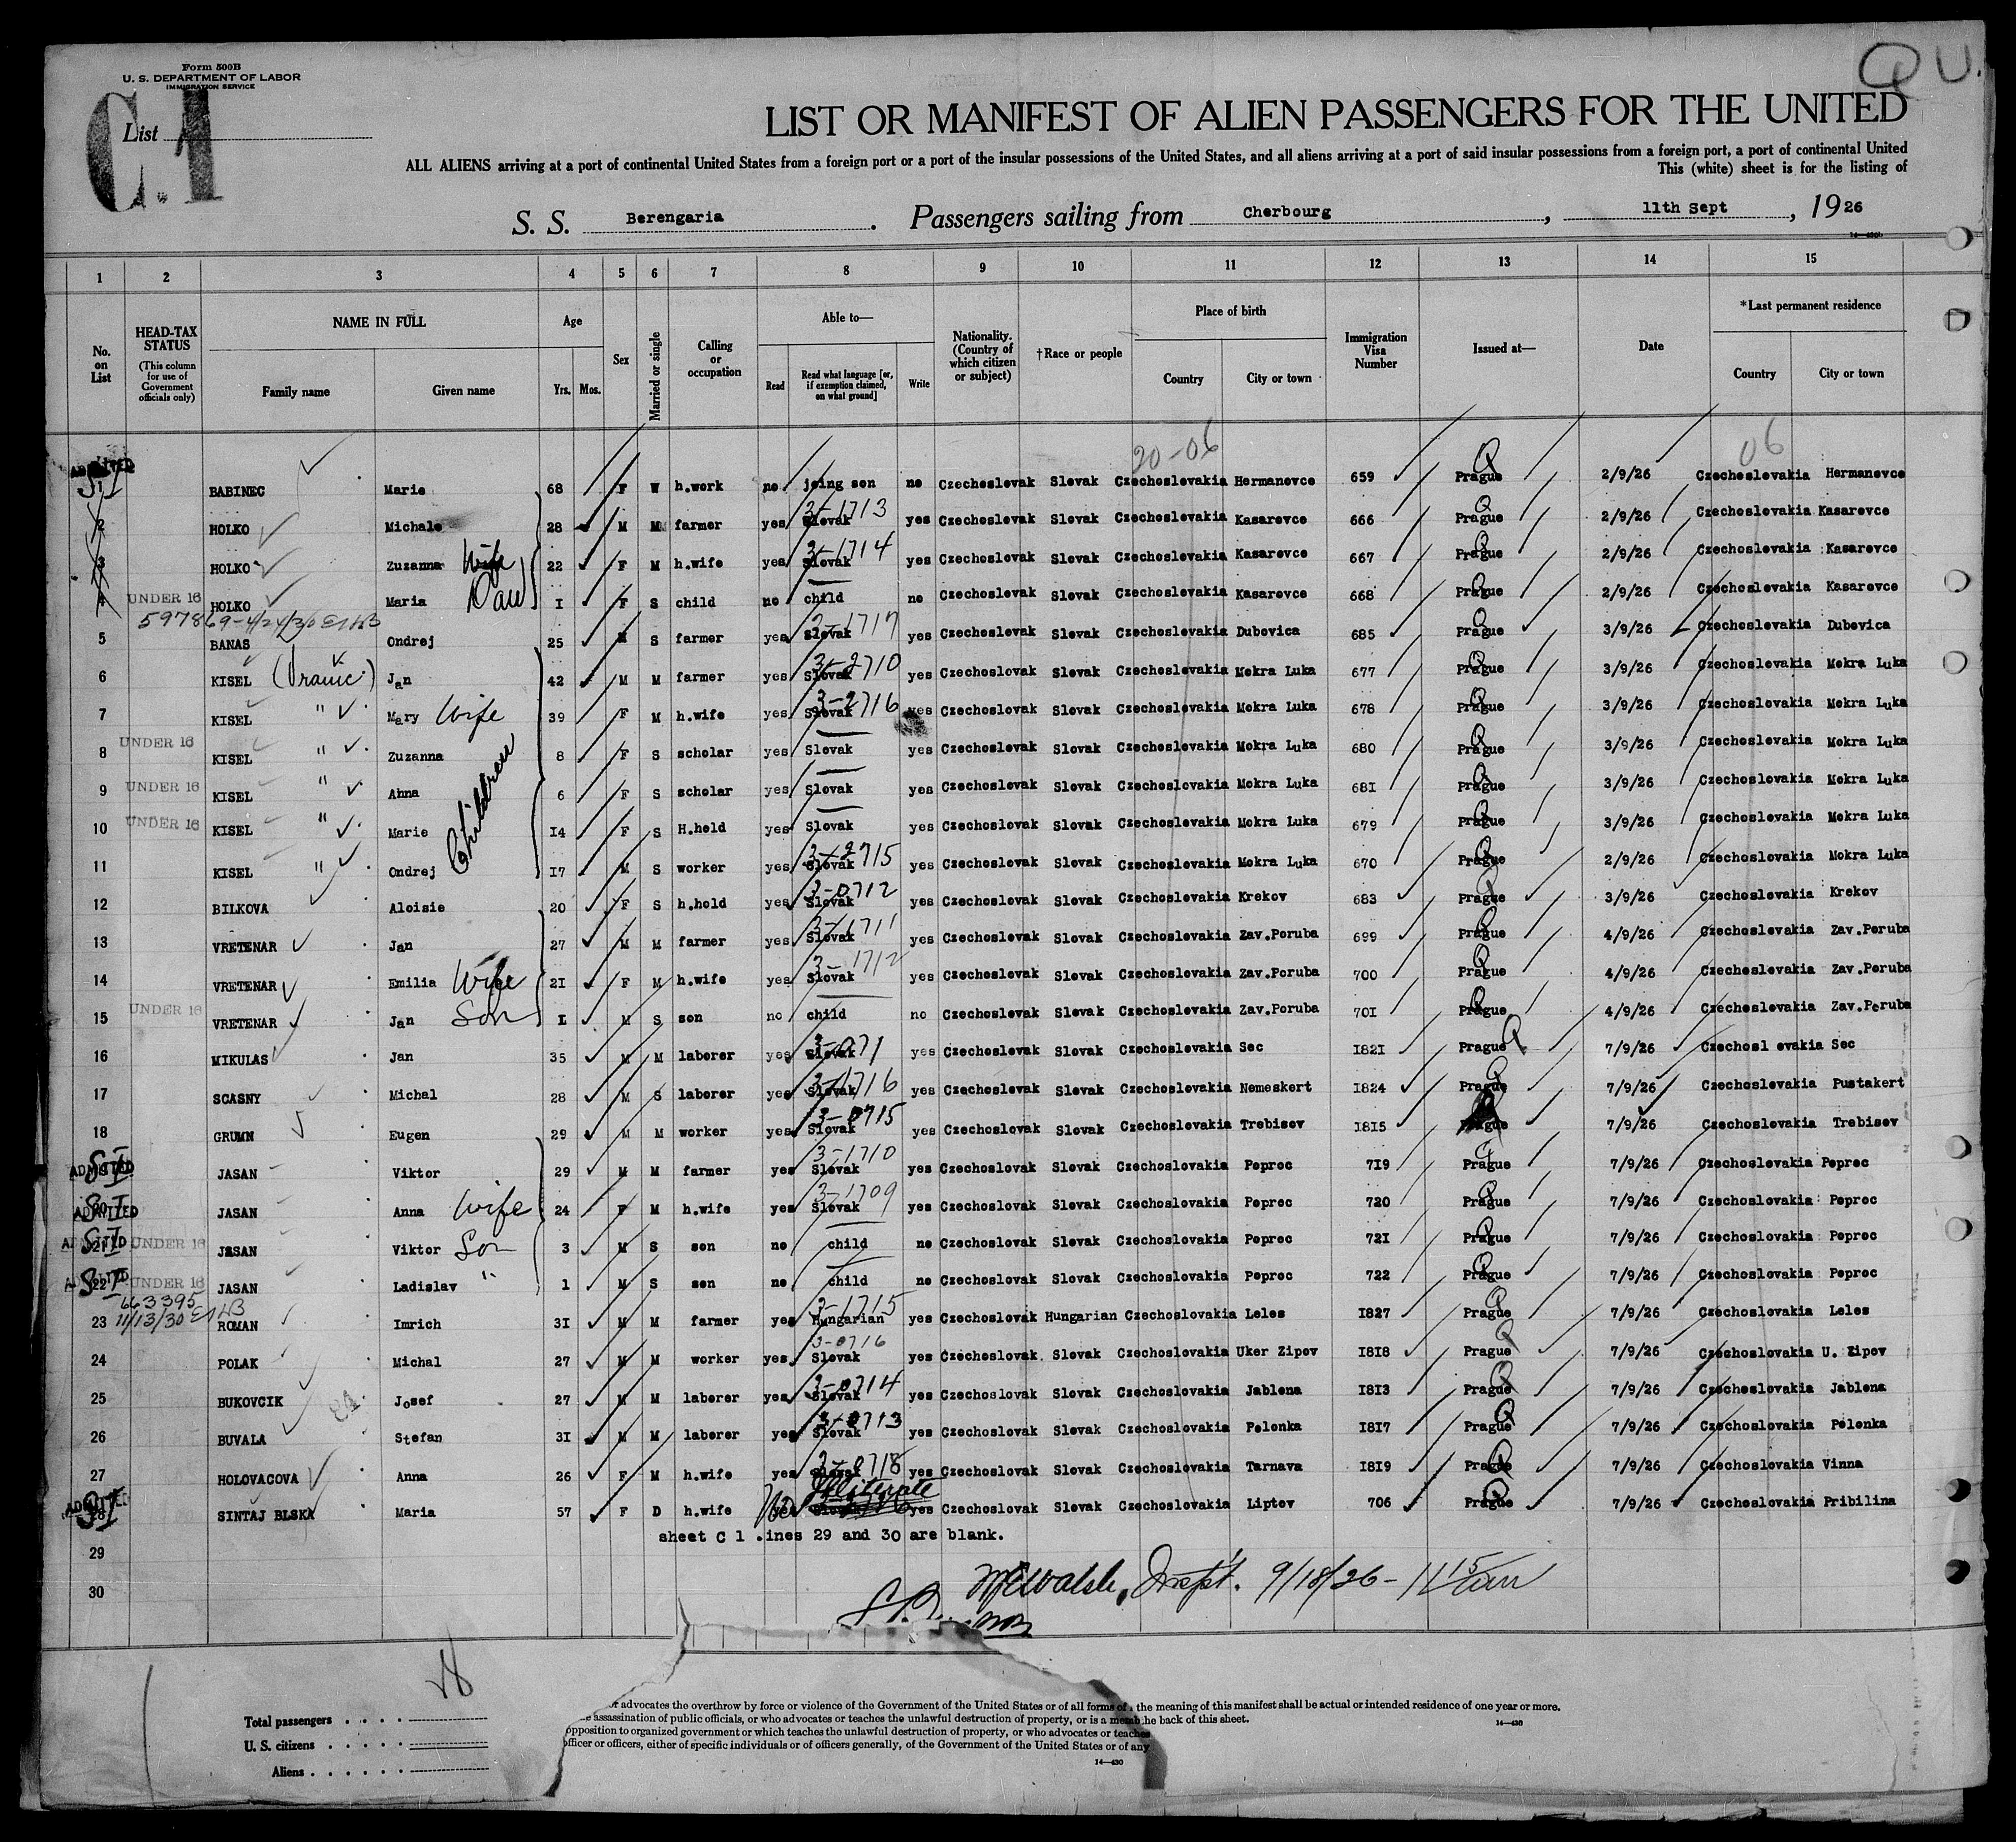 Form 500B
U. S. DEPARTMENT OF LABOR
IMMIGRATION SERVICE
Q U.
C.1
List
LIST OR MANIFEST OF ALIEN PASSENGERS FOR THE UNITED
ALL ALIENS arriving at a port of continental United States from a foreign port or a port of the insular possessions of the United States, and all aliens arriving at a port of said insular possessions from a foreign port, a port of continental United
This (white) sheet is for the listing of
S. S. Berengaria. Passengers sailing from Cherbourg, 11th Sept, 1926
1 2 3 4 5 6 7 8 9 10 11 12 13 14 15
No. on List
HEAD-TAX STATUS (This column for use of Government officials only)
NAME IN FULL Family name Given name
Age Yrs. Mos.
Sex
Married or single
Calling or occupation
Able to— Read Read what language [or, if exemption claimed, on what ground] Write
Nationality. (Country of which citizen or subject)
†Race or people
Place of birth Country City or town
Immigration Visa Number
Issued at—
Date
*Last permanent residence Country City or town
20-06 06
ADMITTED SI 1 BABINEC Marie 68 F W h.work no joing son no Czechoslovak Slovak Czechoslovakia Hermanovce 659 Prague 2/9/26 Czechoslovakia Hermanovce
2 HOLKO Michale 28 M M farmer yes Slovak 3-1713 yes Czechoslovak Slovak Czechoslovakia Kasarovce 666 Prague 2/9/26 Czechoslovakia Kasarovce
3 HOLKO Zuzanna Wife 22 F M h.wife yes Slovak 3-1714 yes Czechoslovak Slovak Czechoslovakia Kasarovce 667 Prague 2/9/26 Czechoslovakia Kasarovce
4 UNDER 16 HOLKO Maria Dau 1 F S child no child no Czechoslovak Slovak Czechoslovakia Kasarovce 668 Prague 2/9/26 Czechoslovakia Kasarovce
5 BANAS Ondrej 25 M S farmer yes Slovak 3-1717 yes Czechoslovak Slovak Czechoslovakia Dubovica 685 Prague 3/9/26 Czechoslovakia Dubovica
6 KISEL Jan 42 M M farmer yes Slovak 3-2710 yes Czechoslovak Slovak Czechoslovakia Mokra Luka 677 Prague 3/9/26 Czechoslovakia Mokra Luka
7 KISEL " Mary Wife 39 F M h.wife yes Slovak 3-2716 yes Czechoslovak Slovak Czechoslovakia Mokra Luka 678 Prague 3/9/26 Czechoslovakia Mokra Luka
8 UNDER 16 KISEL " Zuzanna 8 F S scholar yes Slovak yes Czechoslovak Slovak Czechoslovakia Mokra Luka 680 Prague 3/9/26 Czechoslovakia Mokra Luka
Children
9 UNDER 16 KISEL " Anna 6 F S scholar yes Slovak yes Czechoslovak Slovak Czechoslovakia Mokra Luka 681 Prague 3/9/26 Czechoslovakia Mokra Luka
10 UNDER 16 KISEL " Marie 14 F S H.hold yes Slovak yes Czechoslovak Slovak Czechoslovakia Mokra Luka 679 Prague 3/9/26 Czechoslovakia Mokra Luka
11 KISEL " Ondrej 17 M S worker yes Slovak 3-2715 yes Czechoslovak Slovak Czechoslovakia Mokra Luka 670 Prague 2/9/26 Czechoslovakia Mokra Luka
12 BILKOVA Aloisie 20 F S h.hold yes Slovak 3-0712 yes Czechoslovak Slovak Czechoslovakia Krekov 683 Prague 3/9/26 Czechoslovakia Krekov
13 VRETENAR Jan 27 M M farmer yes Slovak 3-1711 yes Czechoslovak Slovak Czechoslovakia Zav.Poruba 699 Prague 4/9/26 Czechoslovakia Zav.Poruba
14 VRETENAR Emilia Wife 21 F M h.wife yes Slovak 3-1712 yes Czechoslovak Slovak Czechoslovakia Zav.Poruba 700 Prague 4/9/26 Czechoslovakia Zav.Poruba
15 UNDER 16 VRETENAR Jan Son 1 M S son no child no Czechoslovak Slovak Czechoslovakia Zav.Poruba 701 Prague 4/9/26 Czechoslovakia Zav.Poruba
16 MIKULAS Jan 35 M M laborer yes Slovak 3-071 yes Czechoslovak Slovak Czechoslovakia Sec 1821 Prague 7/9/26 Czechosl ovakia Sec
17 SCASNY Michal 28 M S laborer yes Slovak 3-1716 yes Czechoslovak Slovak Czechoslovakia Nemeskert 1824 Prague 7/9/26 Czechoslovakia Pustakert
18 GRUMN Eugen 29 M M worker yes Slovak 3-0715 yes Czechoslovak Slovak Czechoslovakia Trebisov 1815 Prague 7/9/26 Czechoslovakia Trebisov
ADMITTED SI JASAN Viktor 29 M M farmer yes Slovak 3-1710 yes Czechoslovak Slovak Czechoslovakia Poproc 719 Prague 7/9/26 Czechoslovakia Poproc
ADMITTED SI 20 JASAN Anna Wife 24 F M h.wife yes Slovak 3-1709 yes Czechoslovak Slovak Czechoslovakia Poproc 720 Prague 7/9/26 Czechoslovakia Poproc
ADMITTED SI 21 UNDER 16 JASAN Viktor Son 3 M S son no child no Czechoslovak Slovak Czechoslovakia Poproc 721 Prague 7/9/26 Czechoslovakia Poproc
ADMITTED SI 22 UNDER 16 JASAN Ladislav " 1 M S son no child no Czechoslovak Slovak Czechoslovakia Poproc 722 Prague 7/9/26 Czechoslovakia Poproc
663395
23 11/13/30 ROMAN Imrich 31 M M farmer yes Hungarian 3-1715 yes Czechoslovak Hungarian Czechoslovakia Leles 1827 Prague 7/9/26 Czechoslovakia Leles
24 POLAK Michal 27 M M worker yes Slovak 3-0716 yes Czechoslovak Slovak Czechoslovakia Uker Zipov 1818 Prague 7/9/26 Czechoslovakia U. Zipov
25 BUKOVCIK Josef 27 M M laborer yes Slovak 3-0714 yes Czechoslovak Slovak Czechoslovakia Jablona 1813 Prague 7/9/26 Czechoslovakia Jablona
26 BUVALA Stefan 31 M M laborer yes Slovak 3-0713 yes Czechoslovak Slovak Czechoslovakia Polonka 1817 Prague 7/9/26 Czechoslovakia Polonka
27 HOLOVACOVA Anna 26 F M h.wife yes Slovak 3-0718 yes Czechoslovak Slovak Czechoslovakia Tarnava 1819 Prague 7/9/26 Czechoslovakia Vinna
ADMITTED SI 28 SINTAJ BLSKA Maria 57 F D h.wife yes Illiterate Slovak yes Czechoslovak Slovak Czechoslovakia Liptov 706 Prague 7/9/26 Czechoslovakia Pribilina
sheet C 1 .ines 29 and 30 are blank.
29
30
McWalsh, Inspt. 9/18/26- 11 15 am
Total passengers
U. S. citizens
Aliens
or advocates the overthrow by force or violence of the Government of the United States or of all forms of
assassination of public officials, or who advocates or teaches the unlawful destruction of property, or is a memb
opposition to organized government or which teaches the unlawful destruction of property, or who advocates or teaches
officer or officers, either of specific individuals or of officers generally, of the Government of the United States or of any
14—430
the meaning of this manifest shall be actual or intended residence of one year or more.
he back of this sheet.
14—430